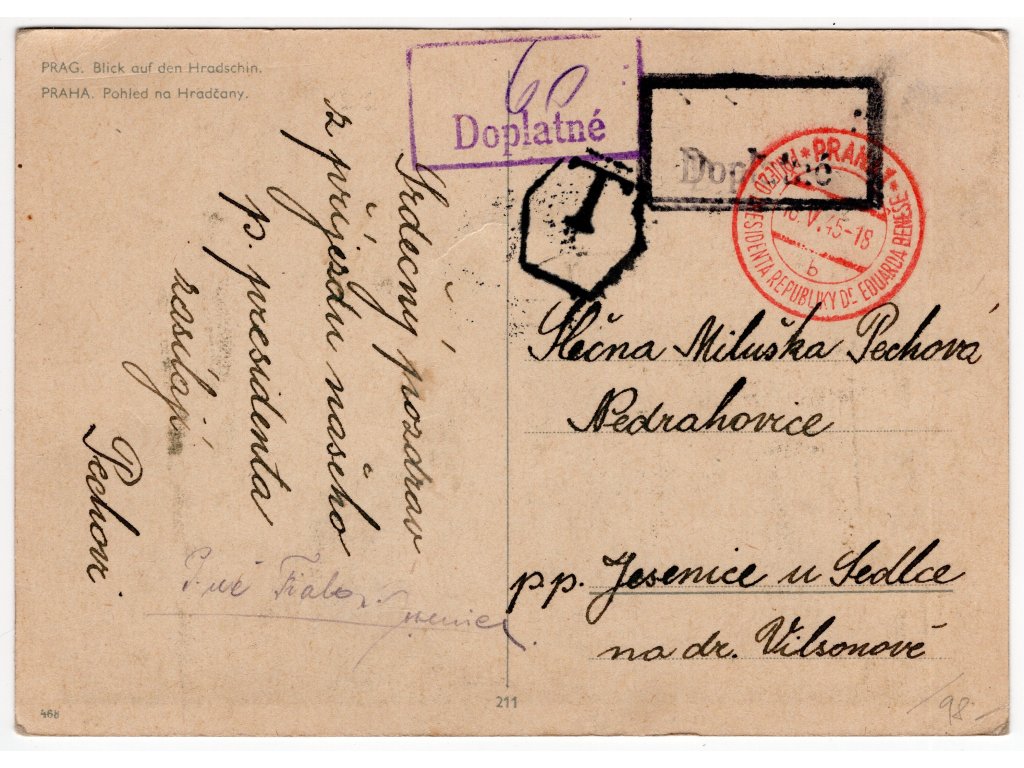 PRAG. Blick auf den Hradschin.
PRAHA. Pohled na Hradčany.
60
Doplatné
Doplatné
T
* PRAHA 1 *
PŘÍJEZD PRESIDENTA REPUBLIKY Dr EDUARDA BENEŠE
16.V.45-18
b
Srdečný pozdrav
z příjezdu našeho
p. presidenta
zasílají
Pechovi
Slečna Miluška Pechová
Nedrahovice
pp. Jesenice u Sedlce
na dr. Vilsonové
468
211
/98.-